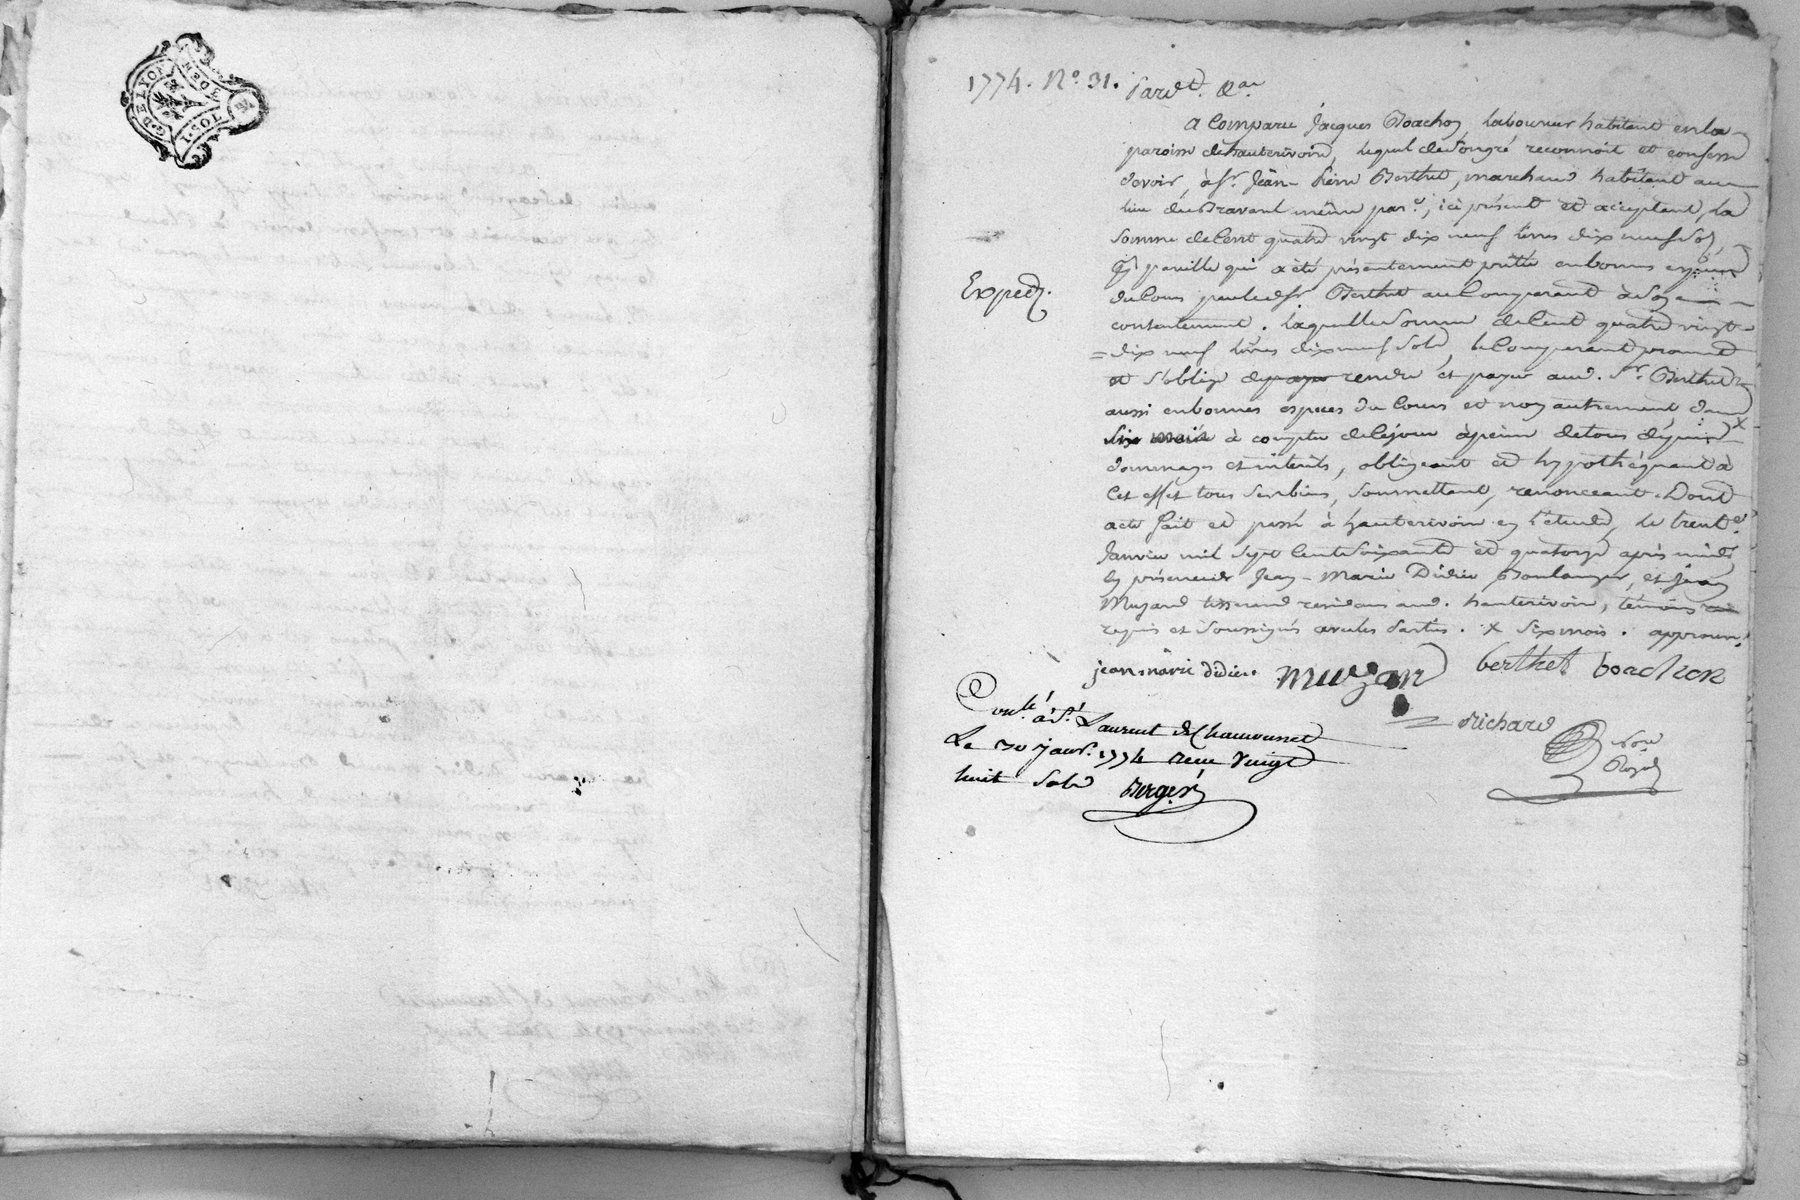 G. DE LYON
1 SOL
1774. N.o 31. Pardt. &ar
A Comparu Jacques Boachon, laboureur habitant en la
paroisse de hauterivoire, lequel de son gré reconnoit et confesse
devoir, à sr. Jean-Pierre Berthet, marchand habitant au
lieu du Bravard même pare., ici présent et acceptant, la
somme de Cent quatre vingt dix neuf livres dix neuf sols,
pareille qui a été présentement prêtée en bonnes espèces
du Cours par led. sr. Berthet au Comparant à son
Exped.
contentement. laquelle somme de Cent quatre vingt
dix neuf livres dix neuf sols, le Comparant promet
et s'oblige de payer rendre et payer aud. sr. Berthet
aussi en bonnes espèces du Cours et non autrement dans
six mois x à compter de Ce jour à peine de tous dépens
dommages et intérêts, obligeant et hypothéquant à
Cet effet tous ses biens, soumettant, renonceant. Dont
acte fait et passé à hauterivoire en l'étude, le trente
Janvier mil sept Cent soixante et quatorze après midi,
en présence de Jean-Marie Didier Boulanger, et Jean
Muzand tisserand residans aud. hauterivoire, témoins
requis et soussignés avec les parties. x six mois. approuvé.
jean marie didier. muzan berthet boachon
Richard
Nore
Royal
Conlé à St. Laurent de Chamousset
Le 30 janvr. 1774 Reçu Vingt
huit sols Berger